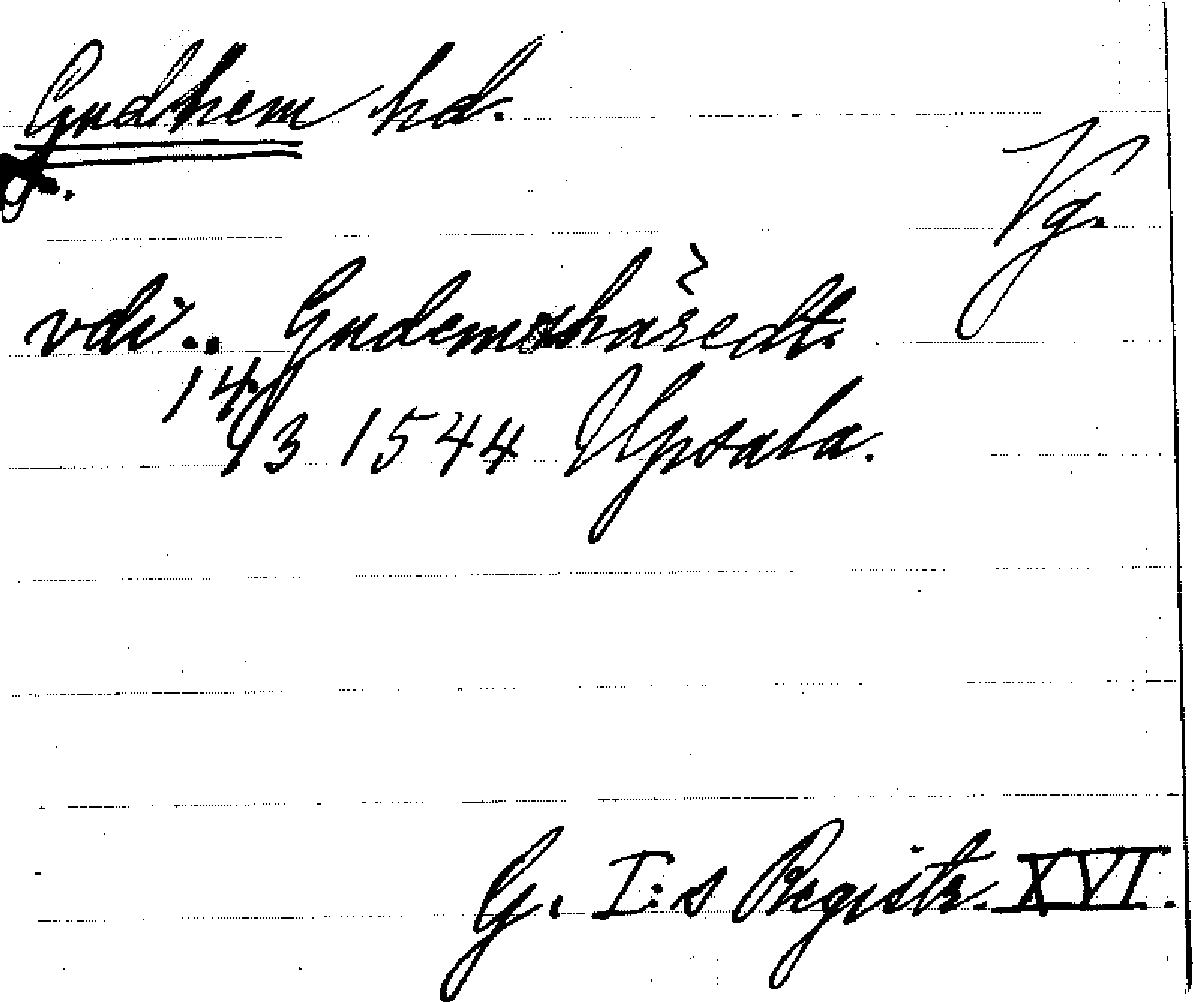 Gudhem hd.
Vg.
vdi .. Gudemshäredt.
14/3 1544 Upsala.
G. I:s Registr. XVI.